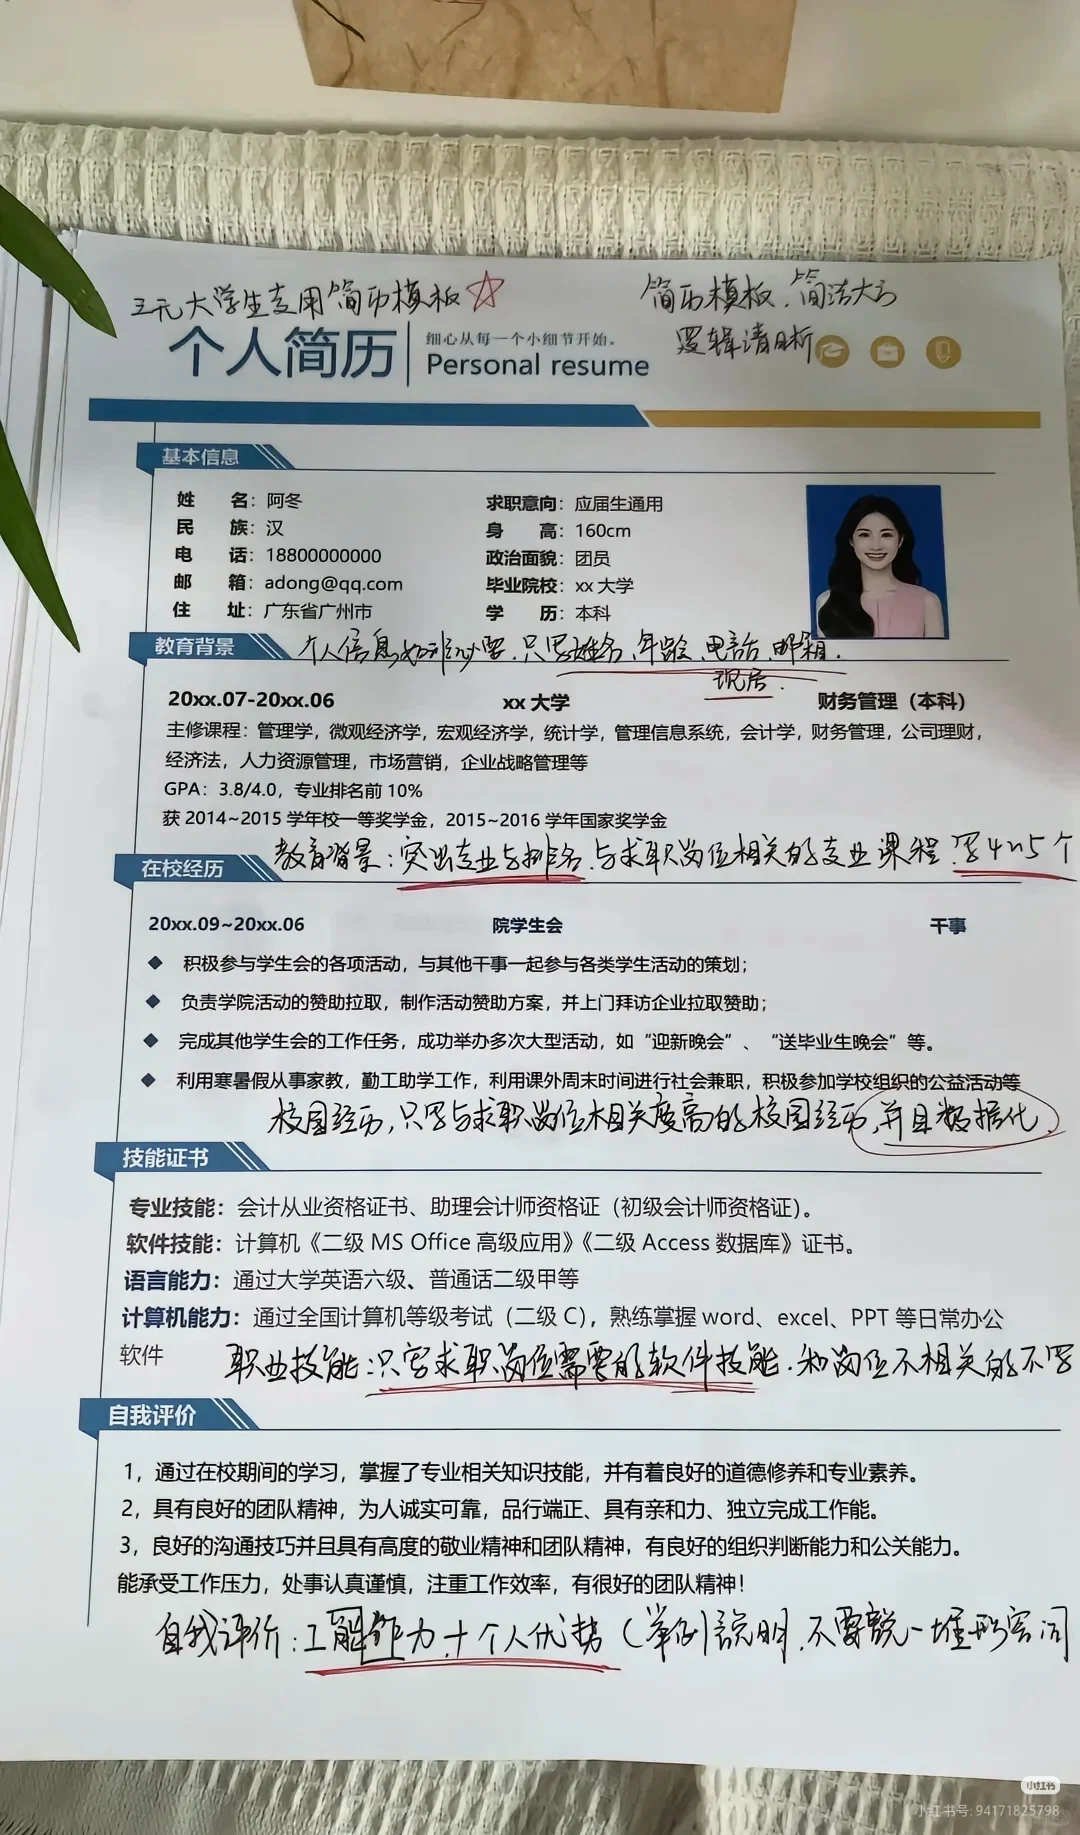 大学生专用简历模板
简历模板.简洁大方
逻辑清晰
个人简历
细心从每一个小细节开始。
Personal resume
基本信息
姓 名：阿冬
求职意向：应届生通用
民 族：汉
身 高：160cm
电 话：18800000000
政治面貌：团员
邮 箱：adong@qq.com
毕业院校：xx 大学
住 址：广东省广州市
学 历：本科
教育背景
个人信息如非必要.只写姓名、年龄、电话、邮箱.
现居.
20xx.07-20xx.06 xx 大学 财务管理（本科）
主修课程：管理学，微观经济学，宏观经济学，统计学，管理信息系统，会计学，财务管理，公司理财，
经济法，人力资源管理，市场营销，企业战略管理等
GPA：3.8/4.0，专业排名前 10%
获 2014~2015 学年校一等奖学金，2015~2016 学年国家奖学金
教育背景：突出专业与排名.与求职岗位相关的专业课程.写4~5个
在校经历
20xx.09~20xx.06 院学生会 干事
◆ 积极参与学生会的各项活动，与其他干事一起参与各类学生活动的策划；
◆ 负责学院活动的赞助拉取，制作活动赞助方案，并上门拜访企业拉取赞助；
◆ 完成其他学生会的工作任务，成功举办多次大型活动，如“迎新晚会”、“送毕业生晚会”等。
◆ 利用寒暑假从事家教，勤工助学工作，利用课外周末时间进行社会兼职，积极参加学校组织的公益活动等
校园经历,只写与求职岗位相关度高的校园经历,并且数据化
技能证书
专业技能：会计从业资格证书、助理会计师资格证（初级会计师资格证）。
软件技能：计算机《二级 MS Office 高级应用》《二级 Access 数据库》证书。
语言能力：通过大学英语六级、普通话二级甲等
计算机能力：通过全国计算机等级考试（二级 C），熟练掌握 word、excel、PPT 等日常办公
软件
职业技能：只写求职岗位需要的软件技能.和岗位不相关的不写
自我评价
1，通过在校期间的学习，掌握了专业相关知识技能，并有着良好的道德修养和专业素养。
2，具有良好的团队精神，为人诚实可靠，品行端正、具有亲和力、独立完成工作能。
3，良好的沟通技巧并且具有高度的敬业精神和团队精神，有良好的组织判断能力和公关能力。
能承受工作压力，处事认真谨慎，注重工作效率，有很好的团队精神！
自我评价：工作能力+个人优势（举例说明.不要说一堆形容词
小红书
小红书号: 94171825798